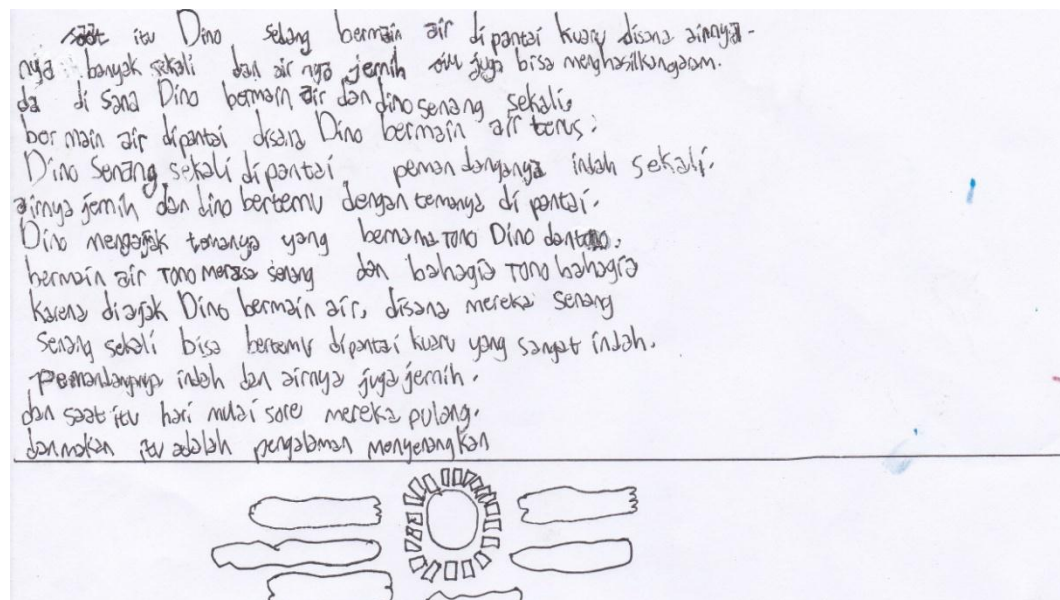 saat itu Dino sedang bermain air di pantai kuaru disana airnya-
nya banyak sekali dan air nya jernih juga bisa menghasilkan garam.
da di sana Dino bermain air dan dino senang sekali.
ber main air dipantai disana Dino bermain air terus.
Dino senang sekali di pantai peman danganya indah sekali.
airnya jernih dan dino bertemu dengan temanya di pantai.
Dino mengajak temanya yang bernama Tono Dino dan tono.
bermain air Tono merasa senang dan bahagia Tono bahagia
karena diajak Dino bermain air, disana mereka senang
senang sekali bisa bertemu dipantai kuaru yang sangat indah.
pemandanganya indah dan airnya juga jernih.
dan saat itu hari mulai sore mereka pulang.
dan makan itu adalah pengalaman menyenangkan